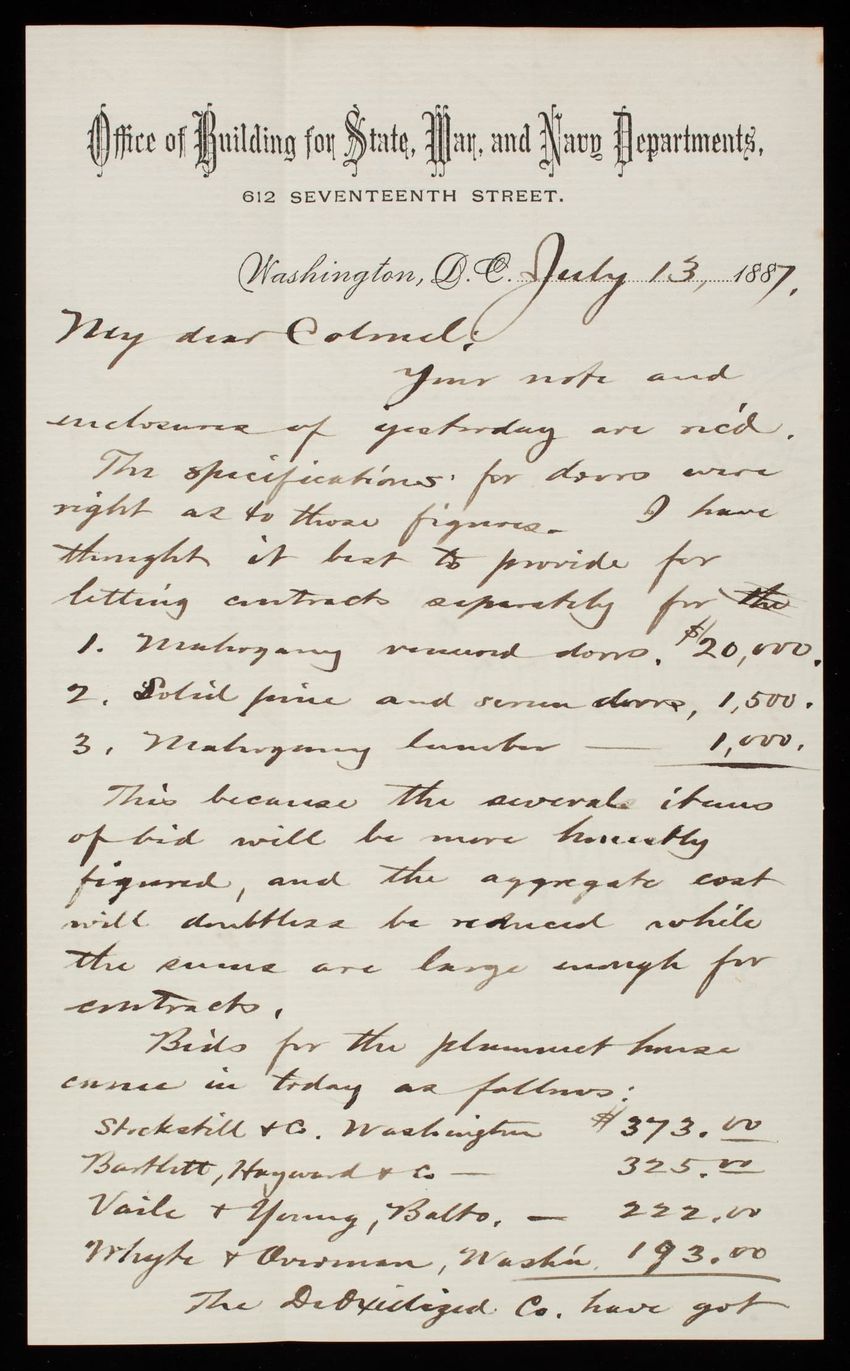 Office of Building for State, War, and Navy Departments,
612 SEVENTEENTH STREET.
Washington, D. C. July 13, 1887.
My dear Colonel:
Your note and
enclosures of yesterday are rec'd.
The specifications for doors were
right as to those figures. I have
thought it best to provide for
letting contracts separately for the
1. Mahogany veneered doors. $20,000.
2. Solid pine and screen doors, 1,500.
3. Mahogany lumber — 1,000.
This because the several items
of bid will be more honestly
figured, and the aggregate cost
will doubtless be reduced while
the sums are large enough for
contracts.
Bids for the plummet house
came in today as follows:
Stockstill & Co. Washington $373.00
Bartlett, Hayward & Co — 325.00
Vaile & Young, Balto. — 222.00
Whyte & Overman, Wash'n. 193.00
The DeOxidized Co. have got